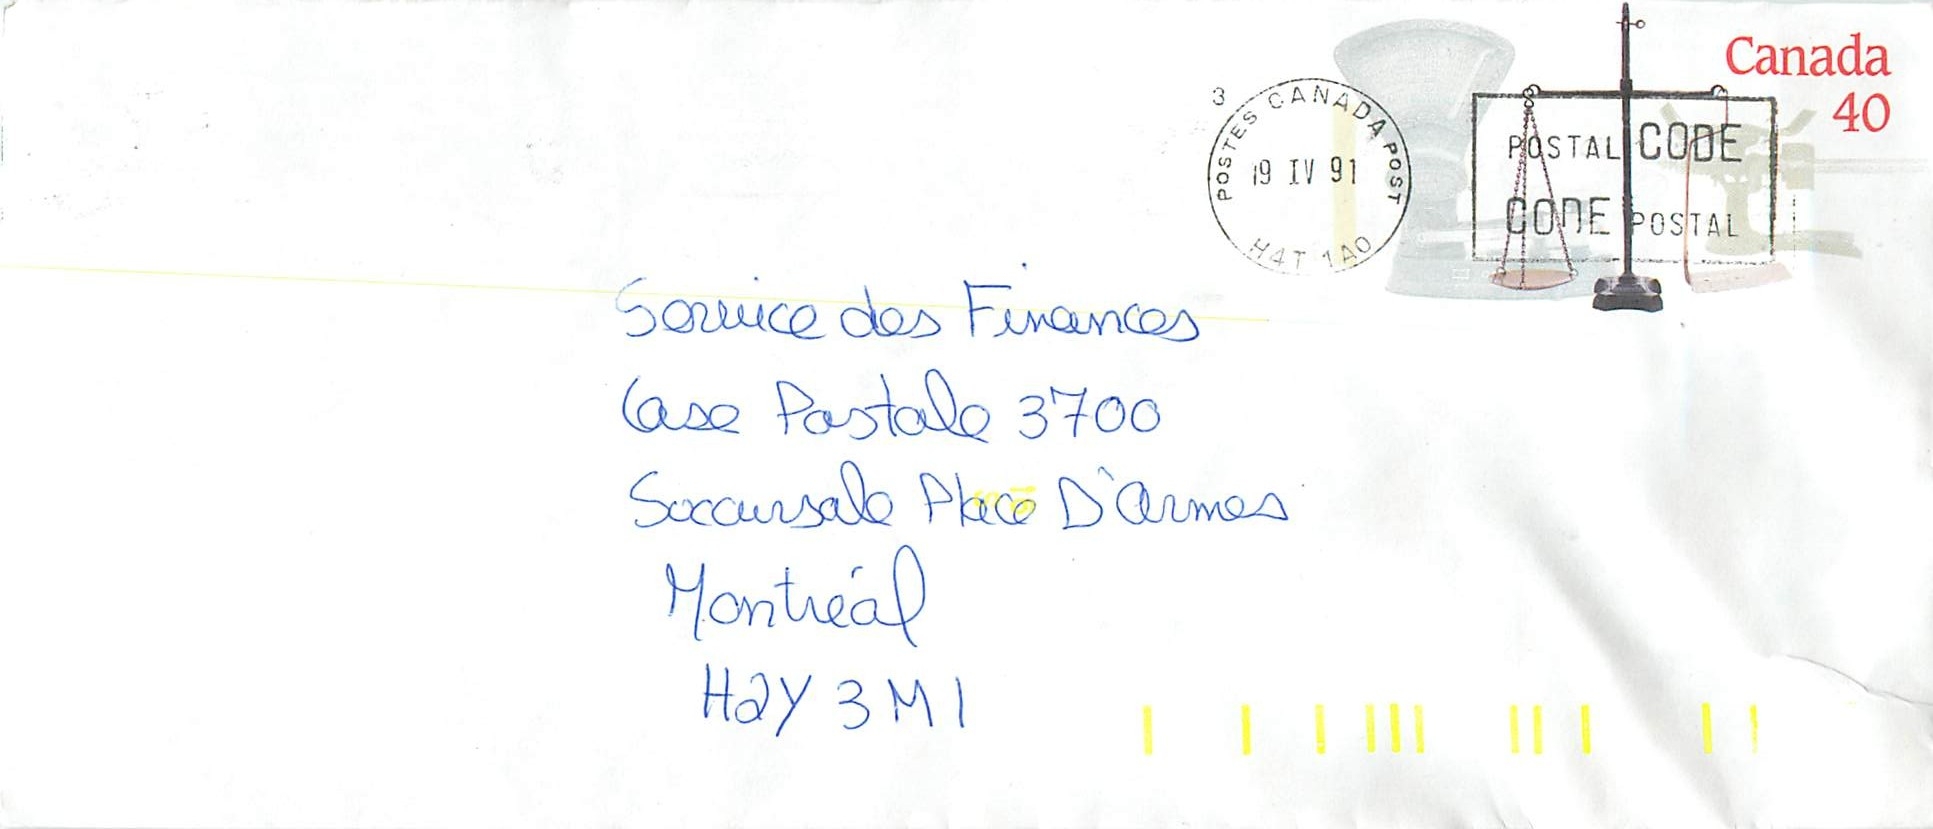 Canada
40
3
POSTES CANADA POST
19 IV 91
H4T 1A0
POSTAL CODE
CODE POSTAL
Service des Finances
Case Postale 3700
Soccursale Place D'Armes
Montréal
H2Y 3M1